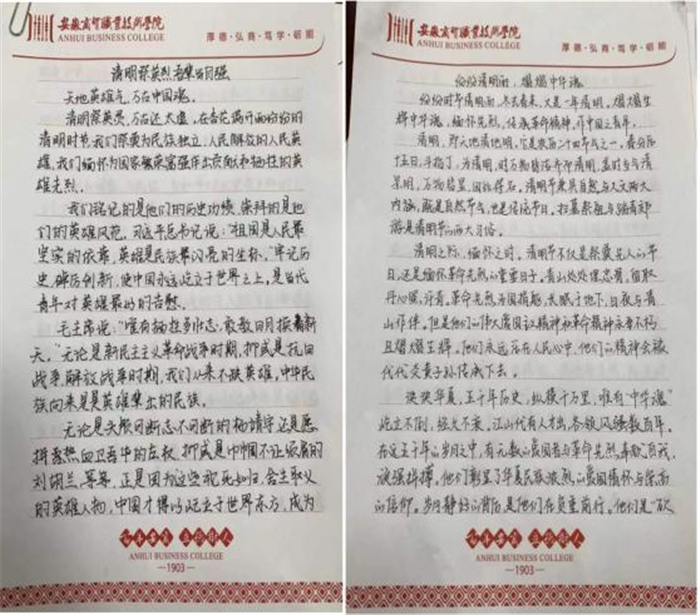 安徽商贸职业技术学院
ANHUI BUSINESS COLLEGE
厚德·弘商·笃学·砺能
清明祭英烈 吾辈当自强
天地英雄气,万古中国魂。
清明祭英灵,万古还太虚,在杏花满开雨纷纷的
清明时节,我们祭奠为民族独立、人民解放的人民英
雄,我们缅怀为国家繁荣富强作出贡献和牺牲的英
雄先烈。
我们铭记的是他们的历史功绩,崇拜的是他
们的英雄风范。习近平总书记说:"祖国是人民最
坚实的依靠,英雄是民族最闪亮的坐标。"牢记历
史,砥砺创新,使中国永远屹立于世界之上,是当代
青年对英雄最好的告慰。
毛主席说:"唯有牺牲多壮志,敢教日月换新
天。"无论是新民主主义革命战争时期,抑或是抗日
战争,解放战争时期,我们从来不缺英雄,中华民
族向来是英雄辈出的民族。
无论是头颅可断志不可断的杨靖宇还是愿
拼热血卫吾华的左权,抑或是巾帼不让须眉的
刘胡兰,等等,正是因为这些视死如归,舍生取义
的英雄人物,中国才得以屹立于世界东方,成为
ANHUI BUSINESS COLLEGE
—1903—
安徽商贸职业技术学院
ANHUI BUSINESS COLLEGE
厚德·弘商·笃学·砺能
纷纷清明雨,熠熠中华魂
纷纷时节清明雨,冬去春来,又是一年清明,熠熠生
辉中华魂,缅怀先烈,传承革命精神,作中国之青年。
清明,即天地清地明,它是农历二十四节气之一。春分后
十五日,斗指丁,为清明,时万物皆洁齐而清明,盖时当气清
景明,万物皆显,因此得名。清明节兼具自然与人文两大
内涵,既是自然节气,也是传统节日。扫墓祭祖与踏青郊
游是清明节的两大习俗。
清明之际,缅怀之时。清明节不仅是祭奠先人的节
日,还是缅怀革命先烈的重要日子。青山处处埋忠骨,留取
丹心照汗青。革命先烈为国捐躯,长眠于地下,日夜与青
山作伴。但是他们的伟大爱国精神和革命精神永垂不朽
且熠熠生辉。他们永远活在人民心中,他们的精神会被
代代炎黄子孙传承下去。
泱泱华夏,五千年历史,纵横千万里,唯有"中华魂"
屹立不倒,经久不衰。江山代有人才出,各领风骚数百年。
在这五千年的岁月中,有无数的爱国者与革命先烈奉献自我,
顽强拼搏。他们彰显了华夏民族浓烈的爱国情怀与崇高
的信仰。岁月静好的背后是他们在负重前行。他们是"砍
ANHUI BUSINESS COLLEGE
—1903—